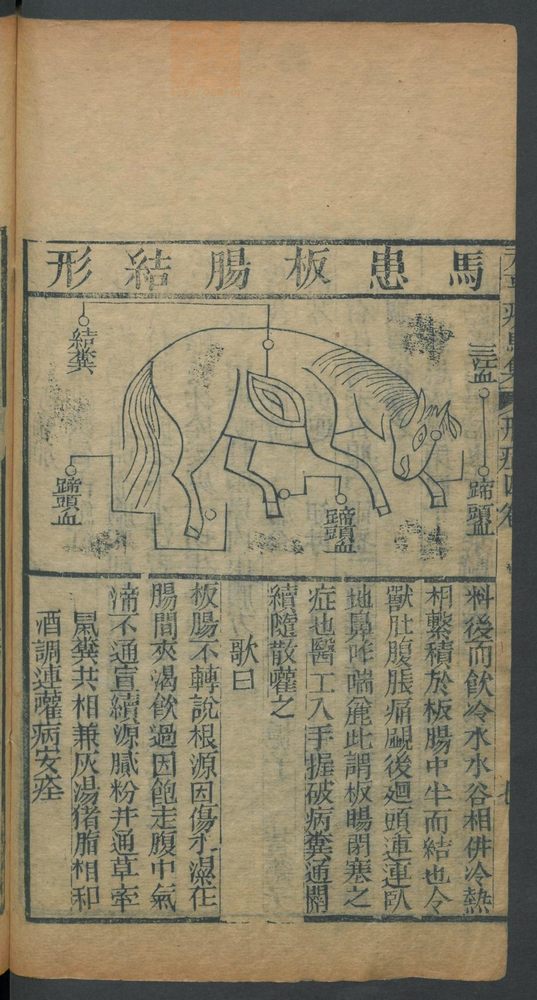 馬患板腸結形
三江血
蹄頭血
蹄頭血
結糞
蹄頭血
料後而飲冷水水谷相併冷熱
相繫積於板腸中半而結也令
獸肚腹脹痛覷後廻頭連連臥
地鼻咋喘麄此謂板腸閉塞之
症也醫工入手握破病糞通關
續隨散嚾之
歌曰
板腸不轉說根源因傷禾濕在
腸間夾渴飲過因飽走腹中氣
滯不通宣續源膩粉并通草牽
鼠糞共相兼灰湯猪脂相和
酒調連嚾病安痊